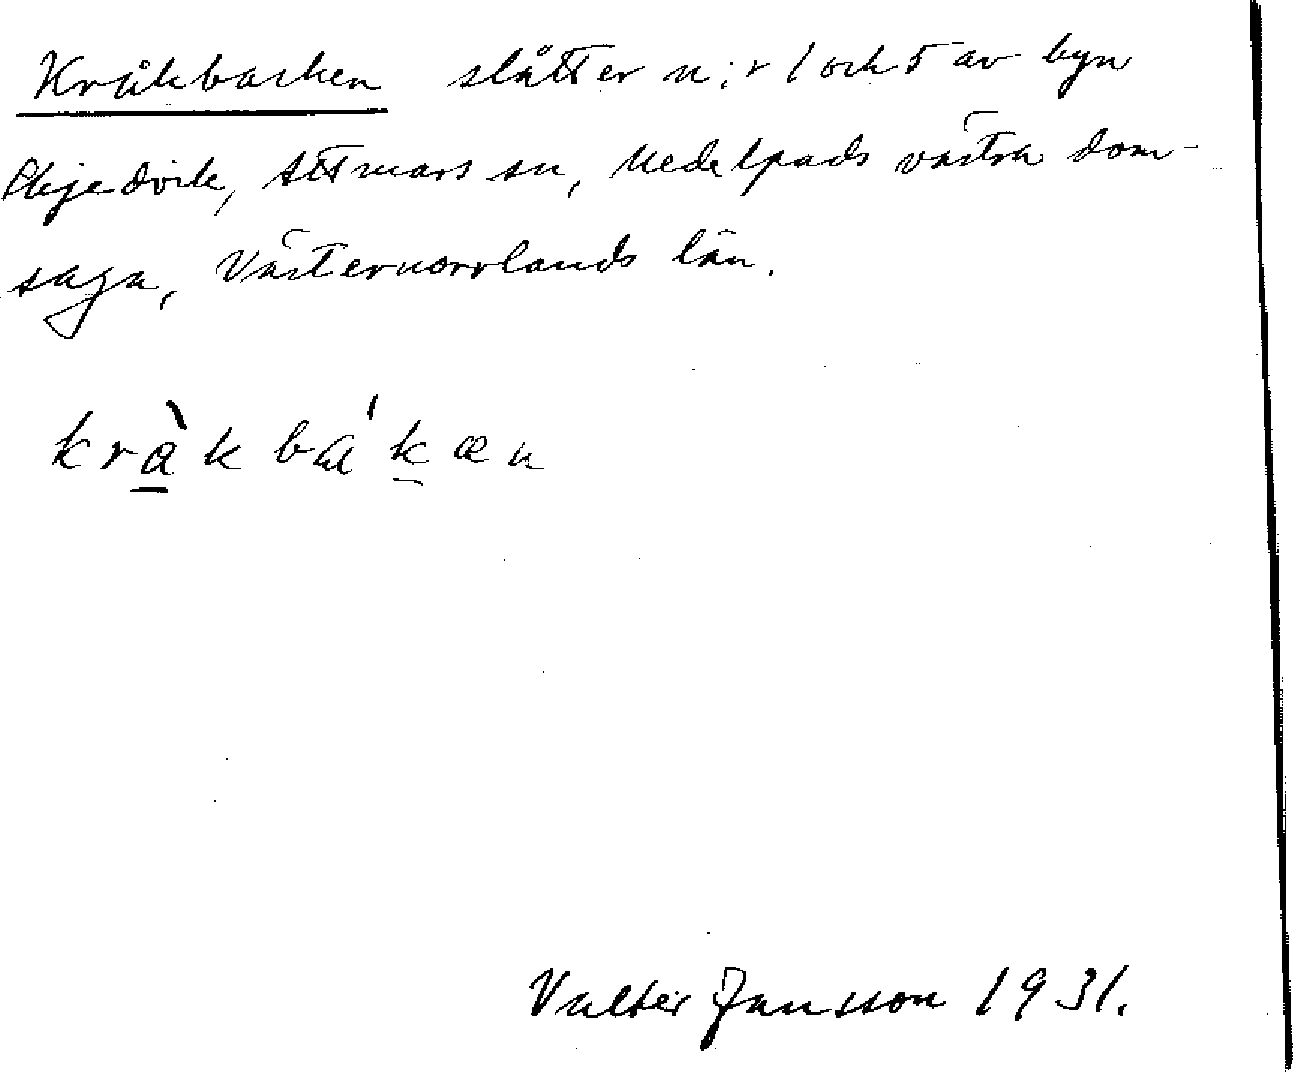 Kråkbacken slåtter n:r 1 och 5 av byn
Skjedvik, Attmars sn, Medelpads västra dom-
saga, Västernorrlands län.
kràkbákæn
Valter Jansson 1931.